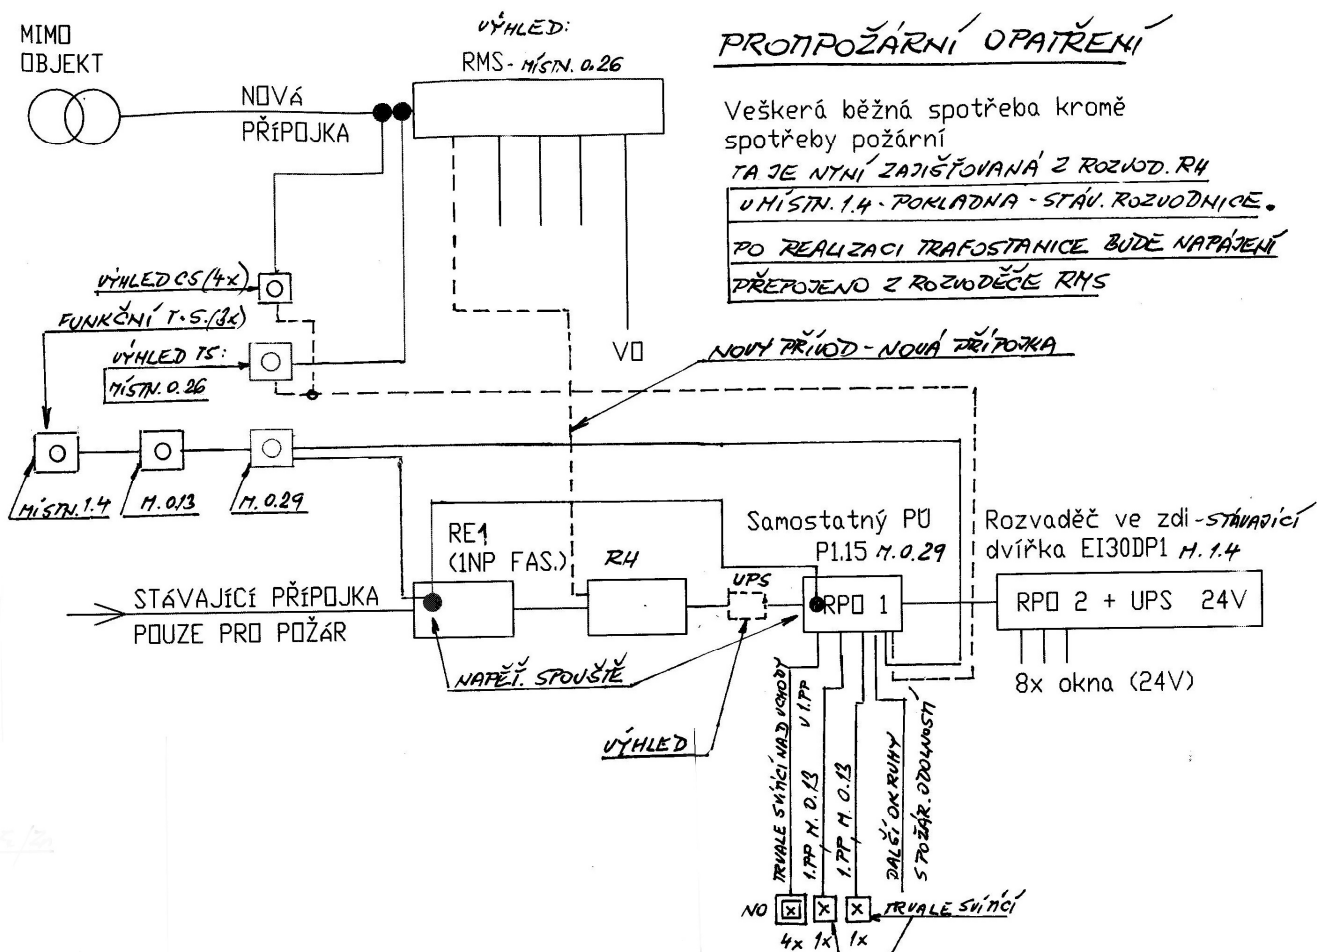 MIMO
OBJEKT
NOVÁ
PŘÍPOJKA
VÝHLED:
RMS- MÍSTN. 0.26
PROTIPOŽÁRNÍ OPATŘENÍ
Veškerá běžná spotřeba kromě
spotřeby požární
TA JE NYNÍ ZAJIŠŤOVANÁ Z ROZVOD. RH
V MÍSTN. 1.4 - POKLADNA - STÁV. ROZVODNICE.
PO REALIZACI TRAFOSTANICE BUDE NAPÁJENÍ
PŘEPOJENO Z ROZVODĚČE RMS
VÝHLED CS (4x)
FUNKČNÍ T.S. (3x)
VÝHLED TS:
MÍSTN. 0.26
VO
NOVÝ PŘÍVOD - NOVÁ PŘÍPOJKA
MÍSTN. 1.4
M. 0.13
M. 0.29
RE1
(1NP FAS.)
RH
UPS
Samostatný PÚ
P1.15 M. 0.29
RPO 1
Rozvaděč ve zdi - STÁVAJÍCÍ
dvířka EI30DP1 M. 1.4
RPO 2 + UPS 24V
8x okna (24V)
STÁVAJÍCÍ PŘÍPOJKA
POUZE PRO POŽÁR
NAPĚŤ. SPOUŠTĚ
VÝHLED
TRVALE SVÍTÍCÍ NAD VCHODY
V 1.PP
1.PP M. 0.13
1.PP M. 0.13
DALŠÍ OKRUHY
S POŽÁR. ODOLNOSTÍ
NO
TRVALE SVÍTÍCÍ
4x 1x 1x